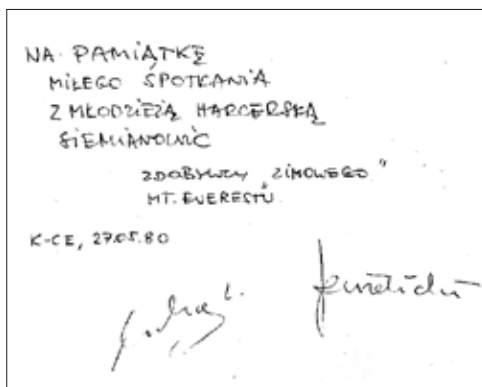 NA PAMIĄTKĘ
MIŁEGO SPOTKANIA
Z MŁODZIEŻĄ HARCERSKĄ
SIEMIANOWIC
ZDOBYWCY „ZIMOWEGO"
MT. EVERESTU
K-CE, 27.05.80